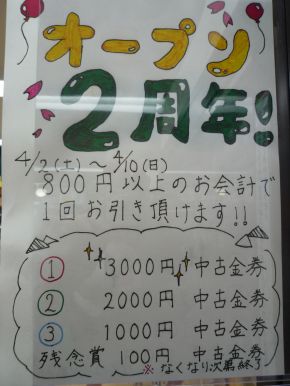 オープン
2周年!
4/2(土)～4/10(日)
800円以上のお会計で
1回お引き頂けます!!
① 3000円 中古金券
② 2000円 中古金券
③ 1000円 中古金券
残念賞 100円 中古金券
※なくなり次第終了